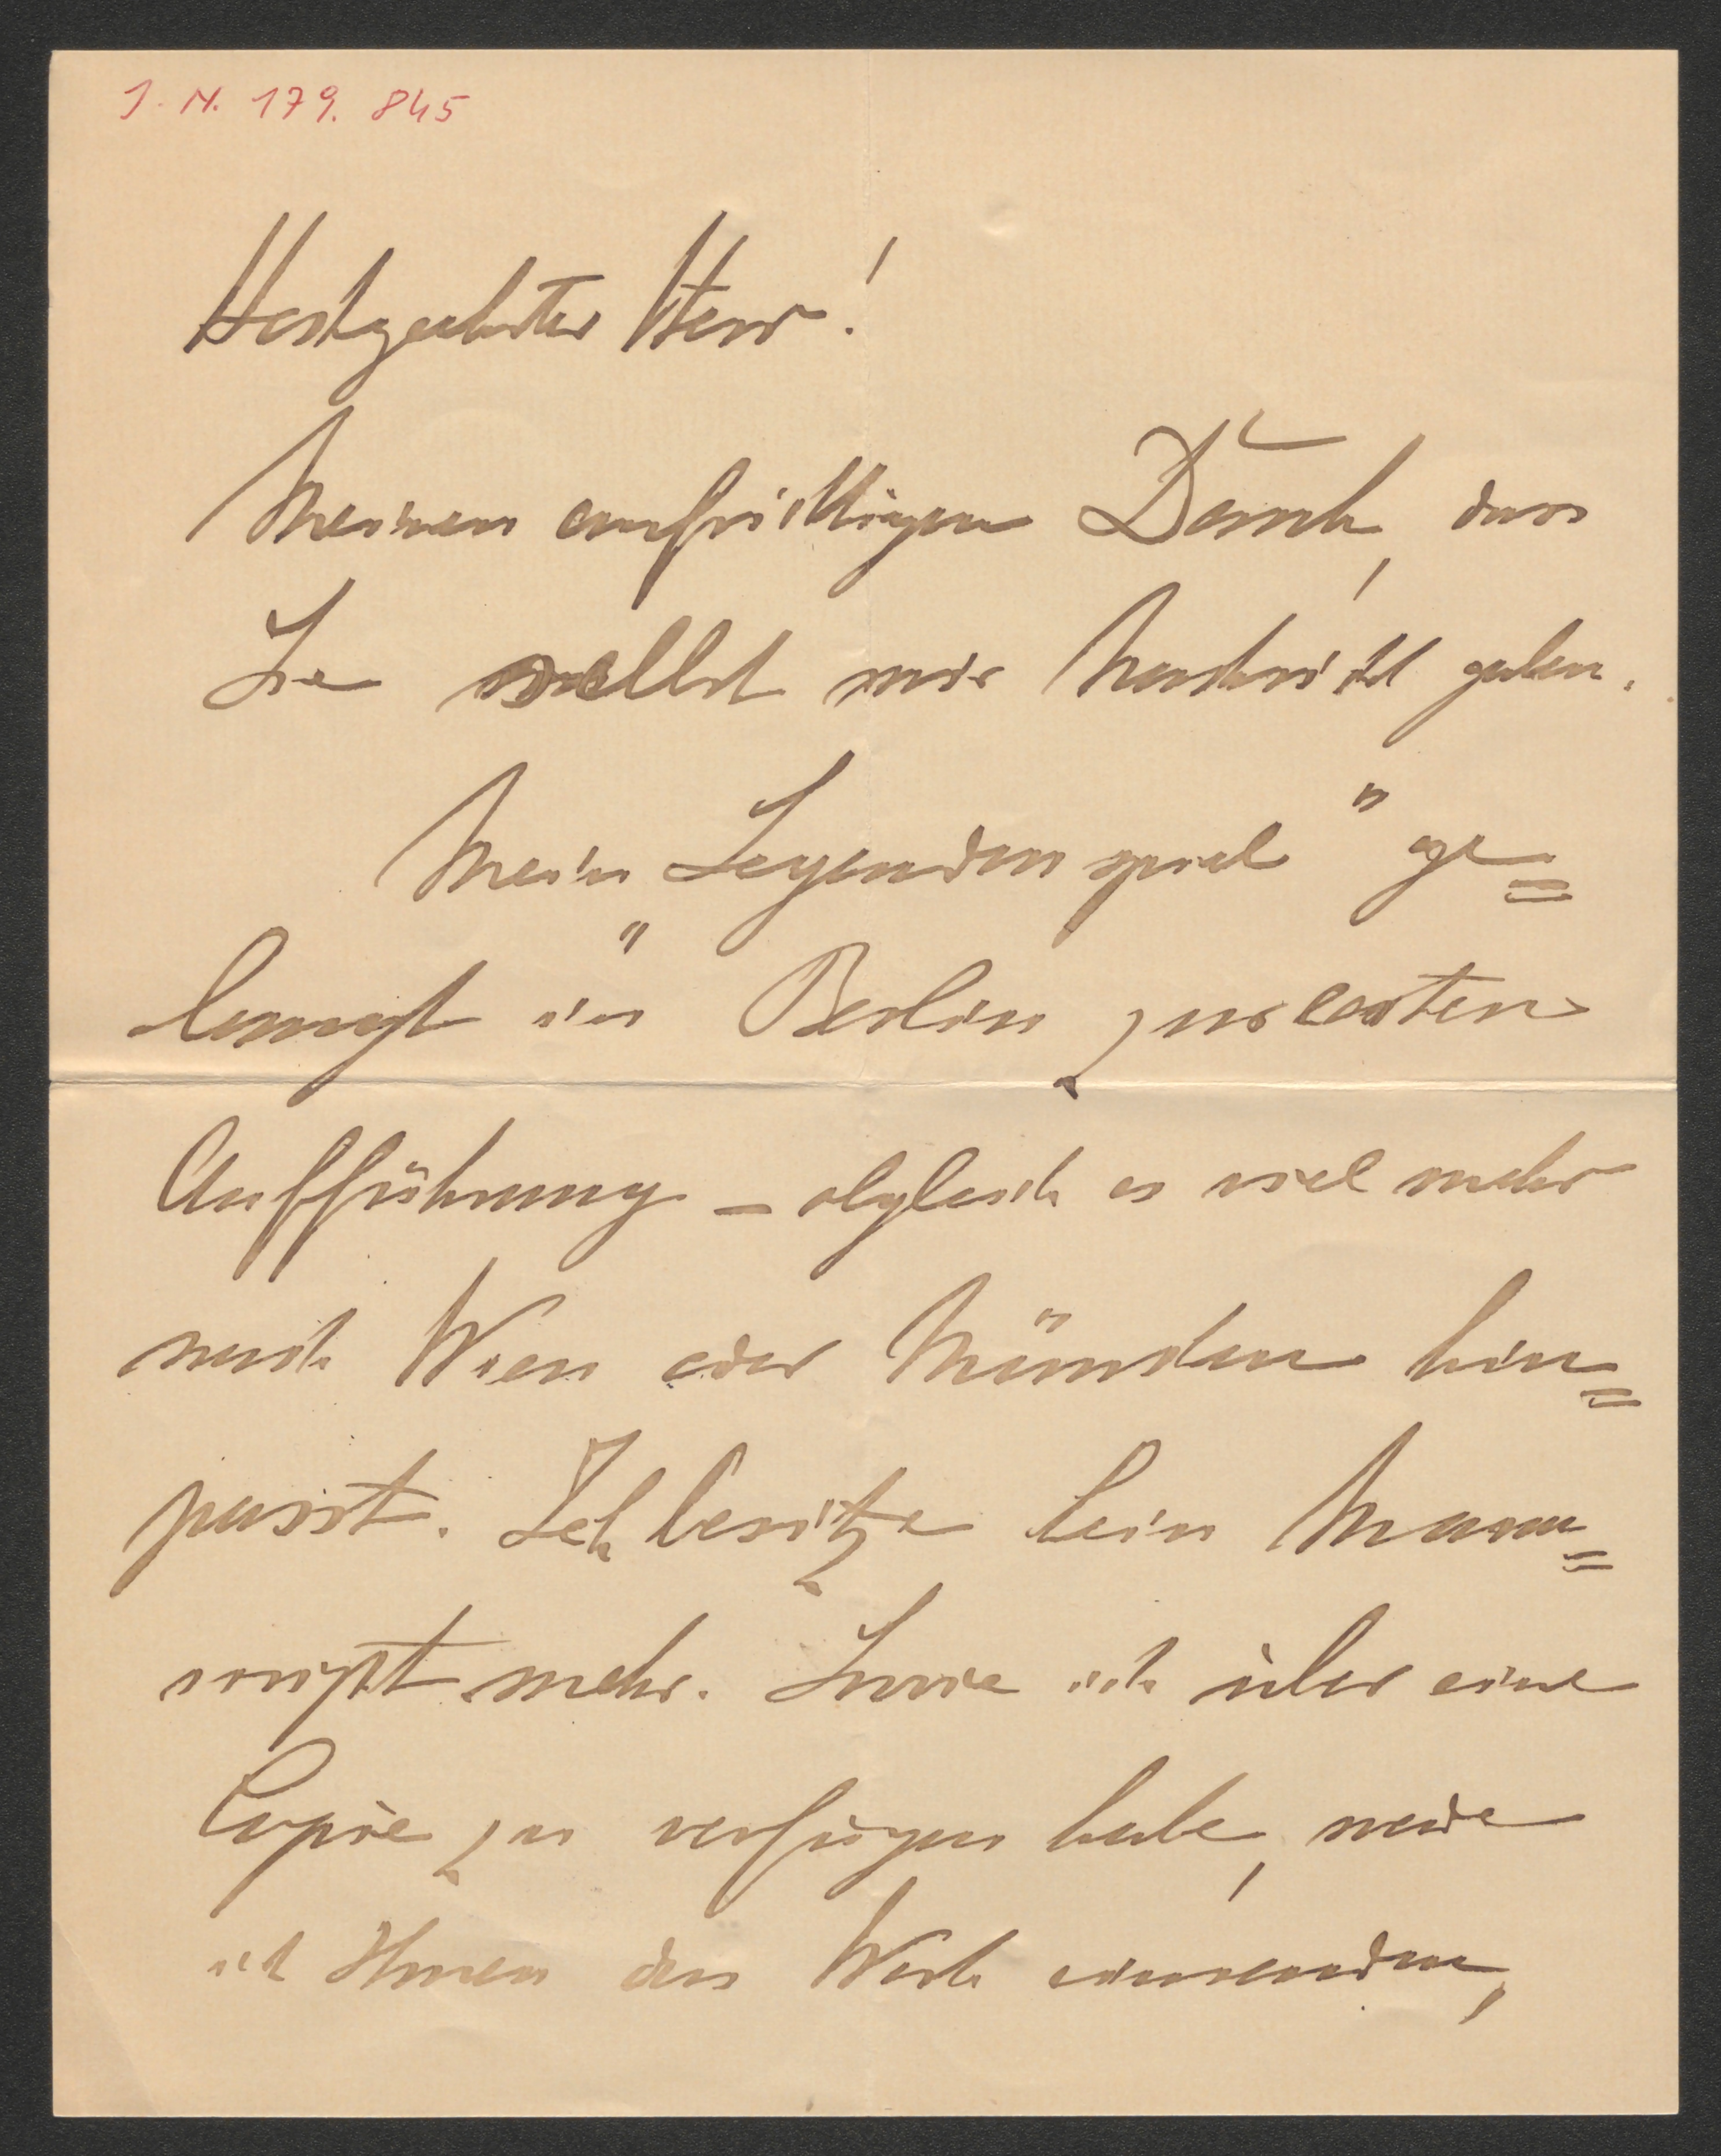 J. N. 179. 845
Hochgeehrter Herr!
Meinen aufrichtigen Dank, dass
Sie selbst mir Nachricht geben.
Mein „Legendenspiel" ge=
langt in Berlin zur ersten
Aufführung – obgleich es viel mehr
nach Wien oder München hin=
passt. Ich besitze kein Manu=
script mehr. Sowie ich über eine
Copie zu verfügen habe, werde
ich Ihnen das Werk einsenden,